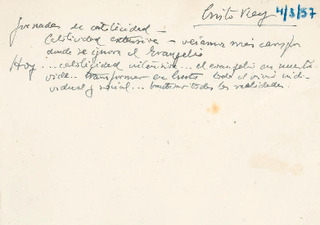 Cristo Rey 4/8/57
Jornadas de catolicidad -
Catolicidad extensiva - vayamos más campo
donde se ignora el Evangelio
Hoy ... catolicidad intensiva ... el evangelio en nuestra
vida ... transformar en Cristo todo el vivir indi-
vidual y social ... bautizar todas las realidades.